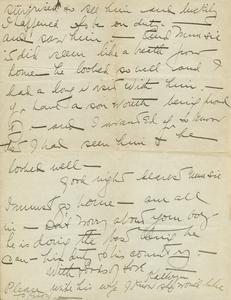 surprised to see him and luckily
I happened to be on duty —
and saw him — and Mumsie
it did seem like a breath from
home — he looked so well and I
had a long visit with him. —
You have a son worth being proud
of — and I wanted you to know
that I had seen him & he
looked well —
Good night dearest Mumsie
I must go home — am all
in — Don't worry about your boy —
he is doing the best he
can — his duty to his country —
With loads of love
Please write his wife, I know she would like